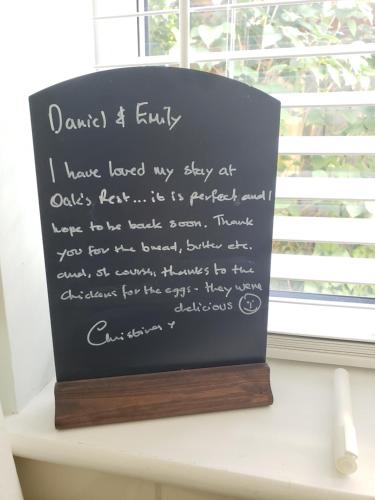 Daniel & Emily
I have loved my stay at
Oak's Rest... it is perfect and I
hope to be back soon. Thank
you for the bread, butter etc.
and, of course, thanks to the
chickens for the eggs - they were
delicious
Christina x